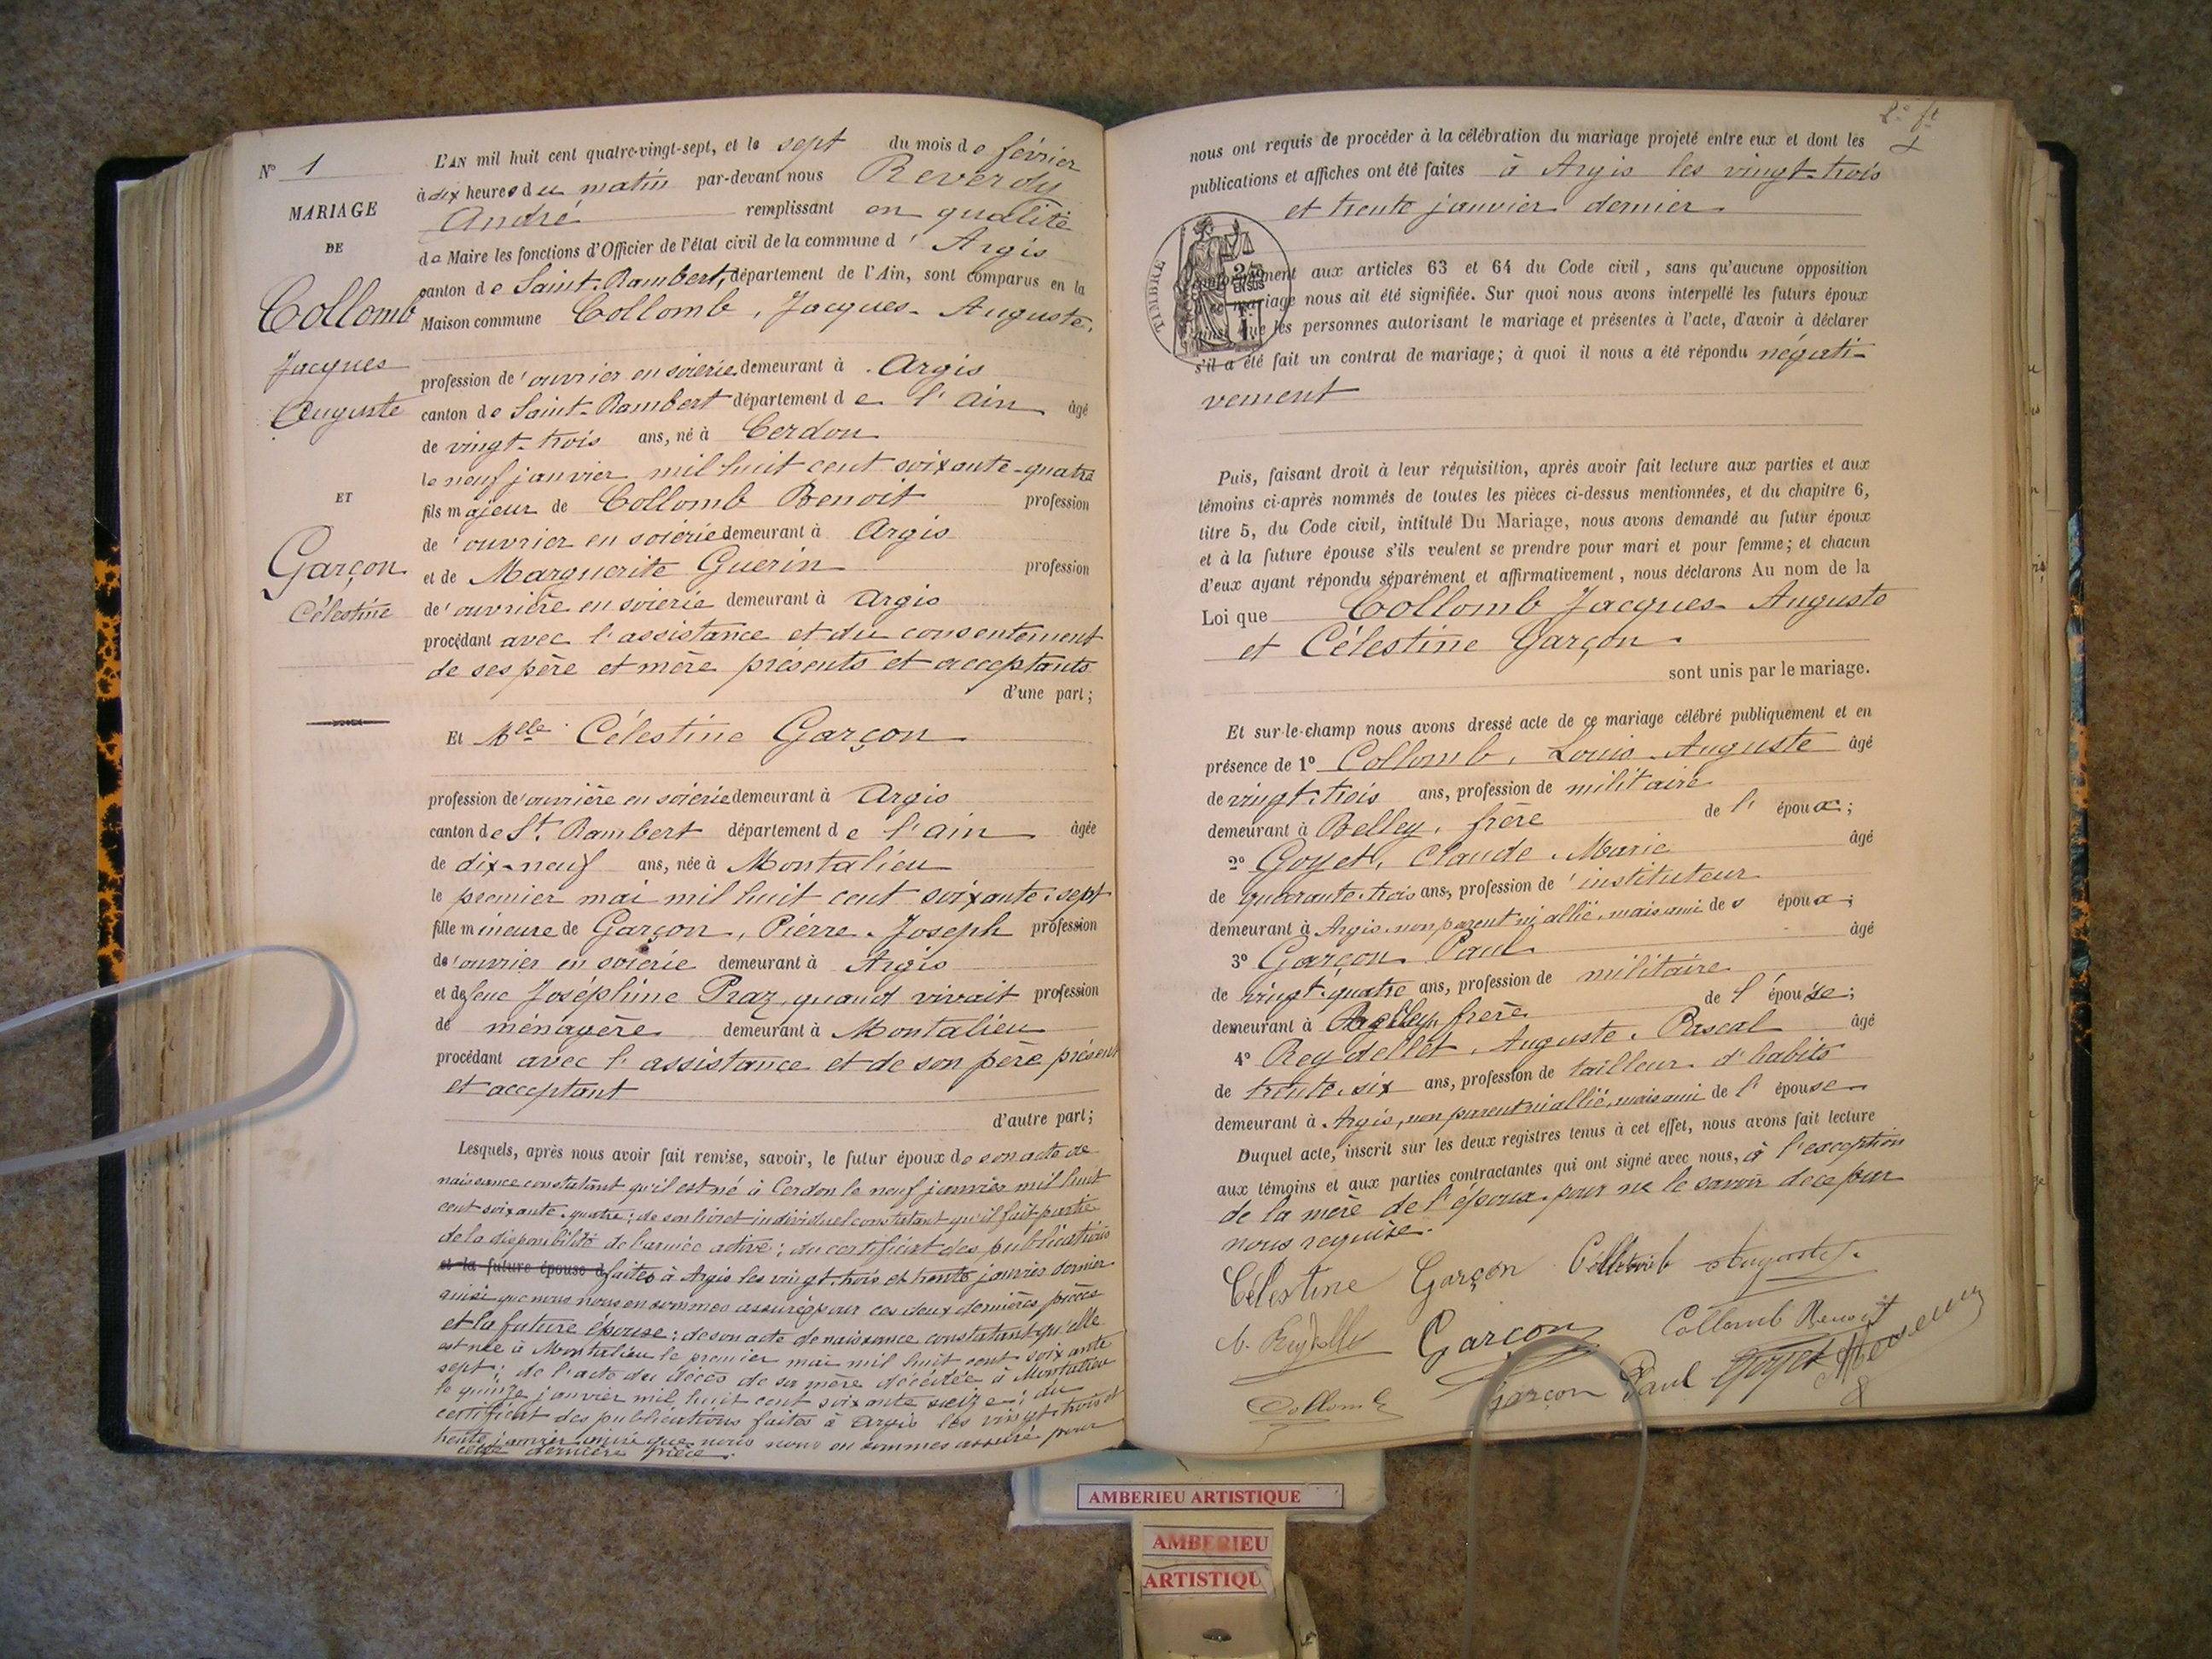 N° 1
MARIAGE
DE
Collomb
Jacques
Auguste
ET
Garçon
Célestine
L'AN mil huit cent quatre-vingt-sept, et le sept du mois de février
à dix heures du matin par-devant nous Reverdy
André remplissant en qualité
de Maire les fonctions d'Officier de l'état civil de la commune d' Argis
canton de Saint-Rambert, département de l'Ain, sont comparus en la
Maison commune Collomb, Jacques-Auguste,
profession d'ouvrier en soierie demeurant à Argis
canton de Saint-Rambert département de l'Ain âgé
de vingt-trois ans, né à Cerdon
le neuf janvier mil huit cent soixante-quatre
fils majeur de Collomb Benoit profession
d'ouvrier en soierie demeurant à Argis
et de Marguerite Guerin profession
d'ouvrière en soierie demeurant à Argis
procédant avec l'assistance et du consentement
de ses père et mère présents et acceptants
d'une part;
Et Mlle Célestine Garçon
profession d'ouvrière en soierie demeurant à Argis
canton de St. Rambert département de l'Ain âgée
de dix-neuf ans, née à Montalieu
le premier mai mil huit cent soixante-sept
fille mineure de Garçon, Pierre-Joseph profession
d'ouvrier en soierie demeurant à Argis
et de feue Joséphine Praz, quand vivait profession
de ménagère demeurant à Montalieu
procédant avec l'assistance et de son père présent
et acceptant
d'autre part;
Lesquels, après nous avoir fait remise, savoir, le futur époux de son acte de
naissance constatant qu'il est né à Cerdon le neuf janvier mil huit
cent soixante-quatre; de son livret individuel constatant qu'il fait partie
de la disponibilité de l'armée active; du certificat des publications
et la future épouse d faites à Argis les vingt-trois et trente janvier dernier
ainsi que nous nous en sommes assuré pour ces deux dernières pièces
et la future épouse: de son acte de naissance constatant qu'elle
est née à Montalieu le premier mai mil huit cent soixante
sept; de l'acte du décès de sa mère décédée à Montalieu
le quinze janvier mil huit cent soixante seize; du
certificat des publications faites à Argis les vingt-trois et
trente janvier ainsi que nous nous en sommes assuré pour
cette dernière pièce.
nous ont requis de procéder à la célébration du mariage projeté entre eux et dont les
publications et affiches ont été faites à Argis les vingt-trois
et trente janvier dernier
TIMBRE
conformément aux articles 63 et 64 du Code civil, sans qu'aucune opposition
à ce mariage nous ait été signifiée. Sur quoi nous avons interpellé les futurs époux
ainsi que les personnes autorisant le mariage et présentes à l'acte, d'avoir à déclarer
s'il a été fait un contrat de mariage; à quoi il nous a été répondu négati-
vement
Puis, faisant droit à leur réquisition, après avoir fait lecture aux parties et aux
témoins ci-après nommés de toutes les pièces ci-dessus mentionnées, et du chapitre 6,
titre 5, du Code civil, intitulé Du Mariage, nous avons demandé au futur époux
et à la future épouse s'ils veulent se prendre pour mari et pour femme; et chacun
d'eux ayant répondu séparément et affirmativement, nous déclarons Au nom de la
Loi que Collomb Jacques-Auguste
et Célestine Garçon
sont unis par le mariage.
Et sur-le-champ nous avons dressé acte de ce mariage célébré publiquement et en
présence de 1° Collomb, Louis-Auguste âgé
de vingt-trois ans, profession de militaire
demeurant à Belley, frère de l'époux;
2° Goyet, Claude-Marie âgé
de quarante-trois ans, profession d'instituteur
demeurant à Argis, non parent ni allié, mais ami des époux;
3° Garçon Paul âgé
de vingt-quatre ans, profession de militaire
demeurant à Belley, frère de l'épouse;
4° Reydellet, Auguste-Pascal âgé
de trente-six ans, profession de tailleur d'habits
demeurant à Argis, non parent ni allié, mais ami de l'épouse
Duquel acte, inscrit sur les deux registres tenus à cet effet, nous avons fait lecture
aux témoins et aux parties contractantes qui ont signé avec nous, à l'exception
de la mère de l'époux pour ne le savoir de ce par
nous requise.
Célestine Garçon Collomb Auguste
Garçon Collomb Benoit
Collomb Garçon Paul Goyet
AMBERIEU ARTISTIQUE
AMBERIEU
ARTISTIQU